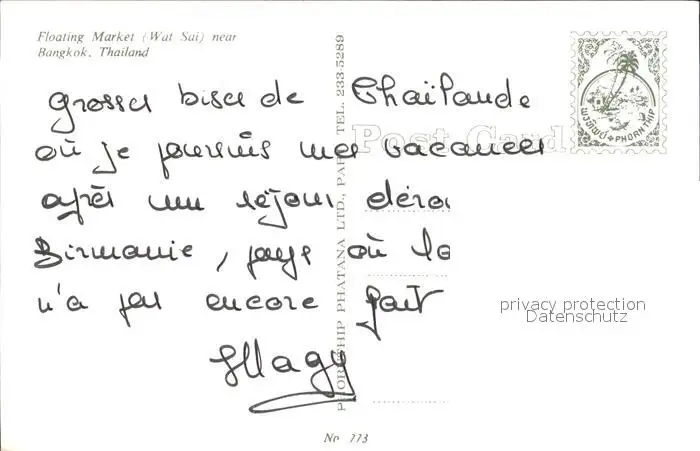 Floating Market (Wat Sai) near
Bangkok, Thailand
Post Card
พรทิพย์ PHORNTHIP
grosses bises de Thaïlande
où je poursuis mes vacances
après un séjour
Birmanie, pays où
n'a pas encore fait
Magy
PHORNTHIP PHATANA LTD., TEL. 233-5289
privacy protection
Datenschutz
No 773